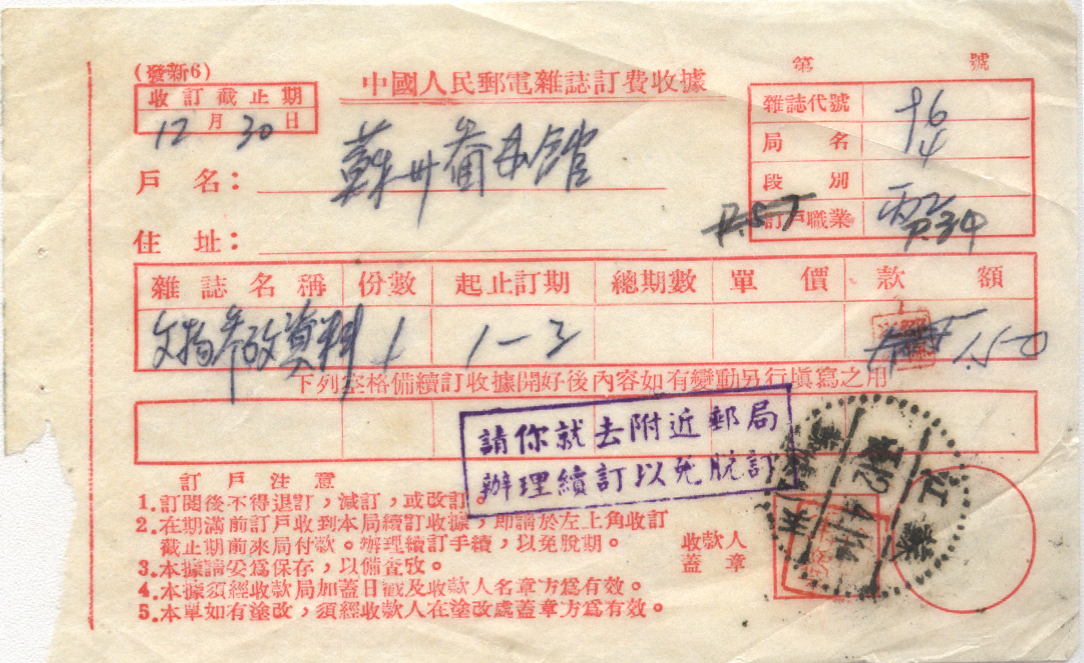 (發新6)
中國人民郵電雜誌訂費收據
第 號
收訂截止期
12月30日
雜誌代號
96
局名
4
戶名：
蘇州圖書館
段別
訂戶職業
P.57
P.34
住址：
雜誌名稱 份數 起止訂期 總期數 單價 款額
文物參攷資料 1 1—3 1.50
下列空格備續訂收據開好後內容如有變動另行填寫之用
請你就去附近郵局
辦理續訂以免脫訂
訂戶注意
1.訂閱後不得退訂，減訂，或改訂。
2.在期滿前訂戶收到本局續訂收據，即請於左上角收訂
截止期前來局付款。辦理續訂手續，以免脫期。
3.本據請妥爲保存，以備查攷。
4.本據須經收款局加蓋日戳及收款人名章方爲有效。
5.本單如有塗改，須經收款人在塗改處蓋章方爲有效。
收款人
蓋章
江蘇